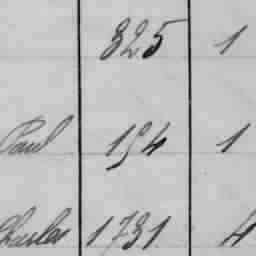 825 1
Paul 194 1
Charles 1731 4